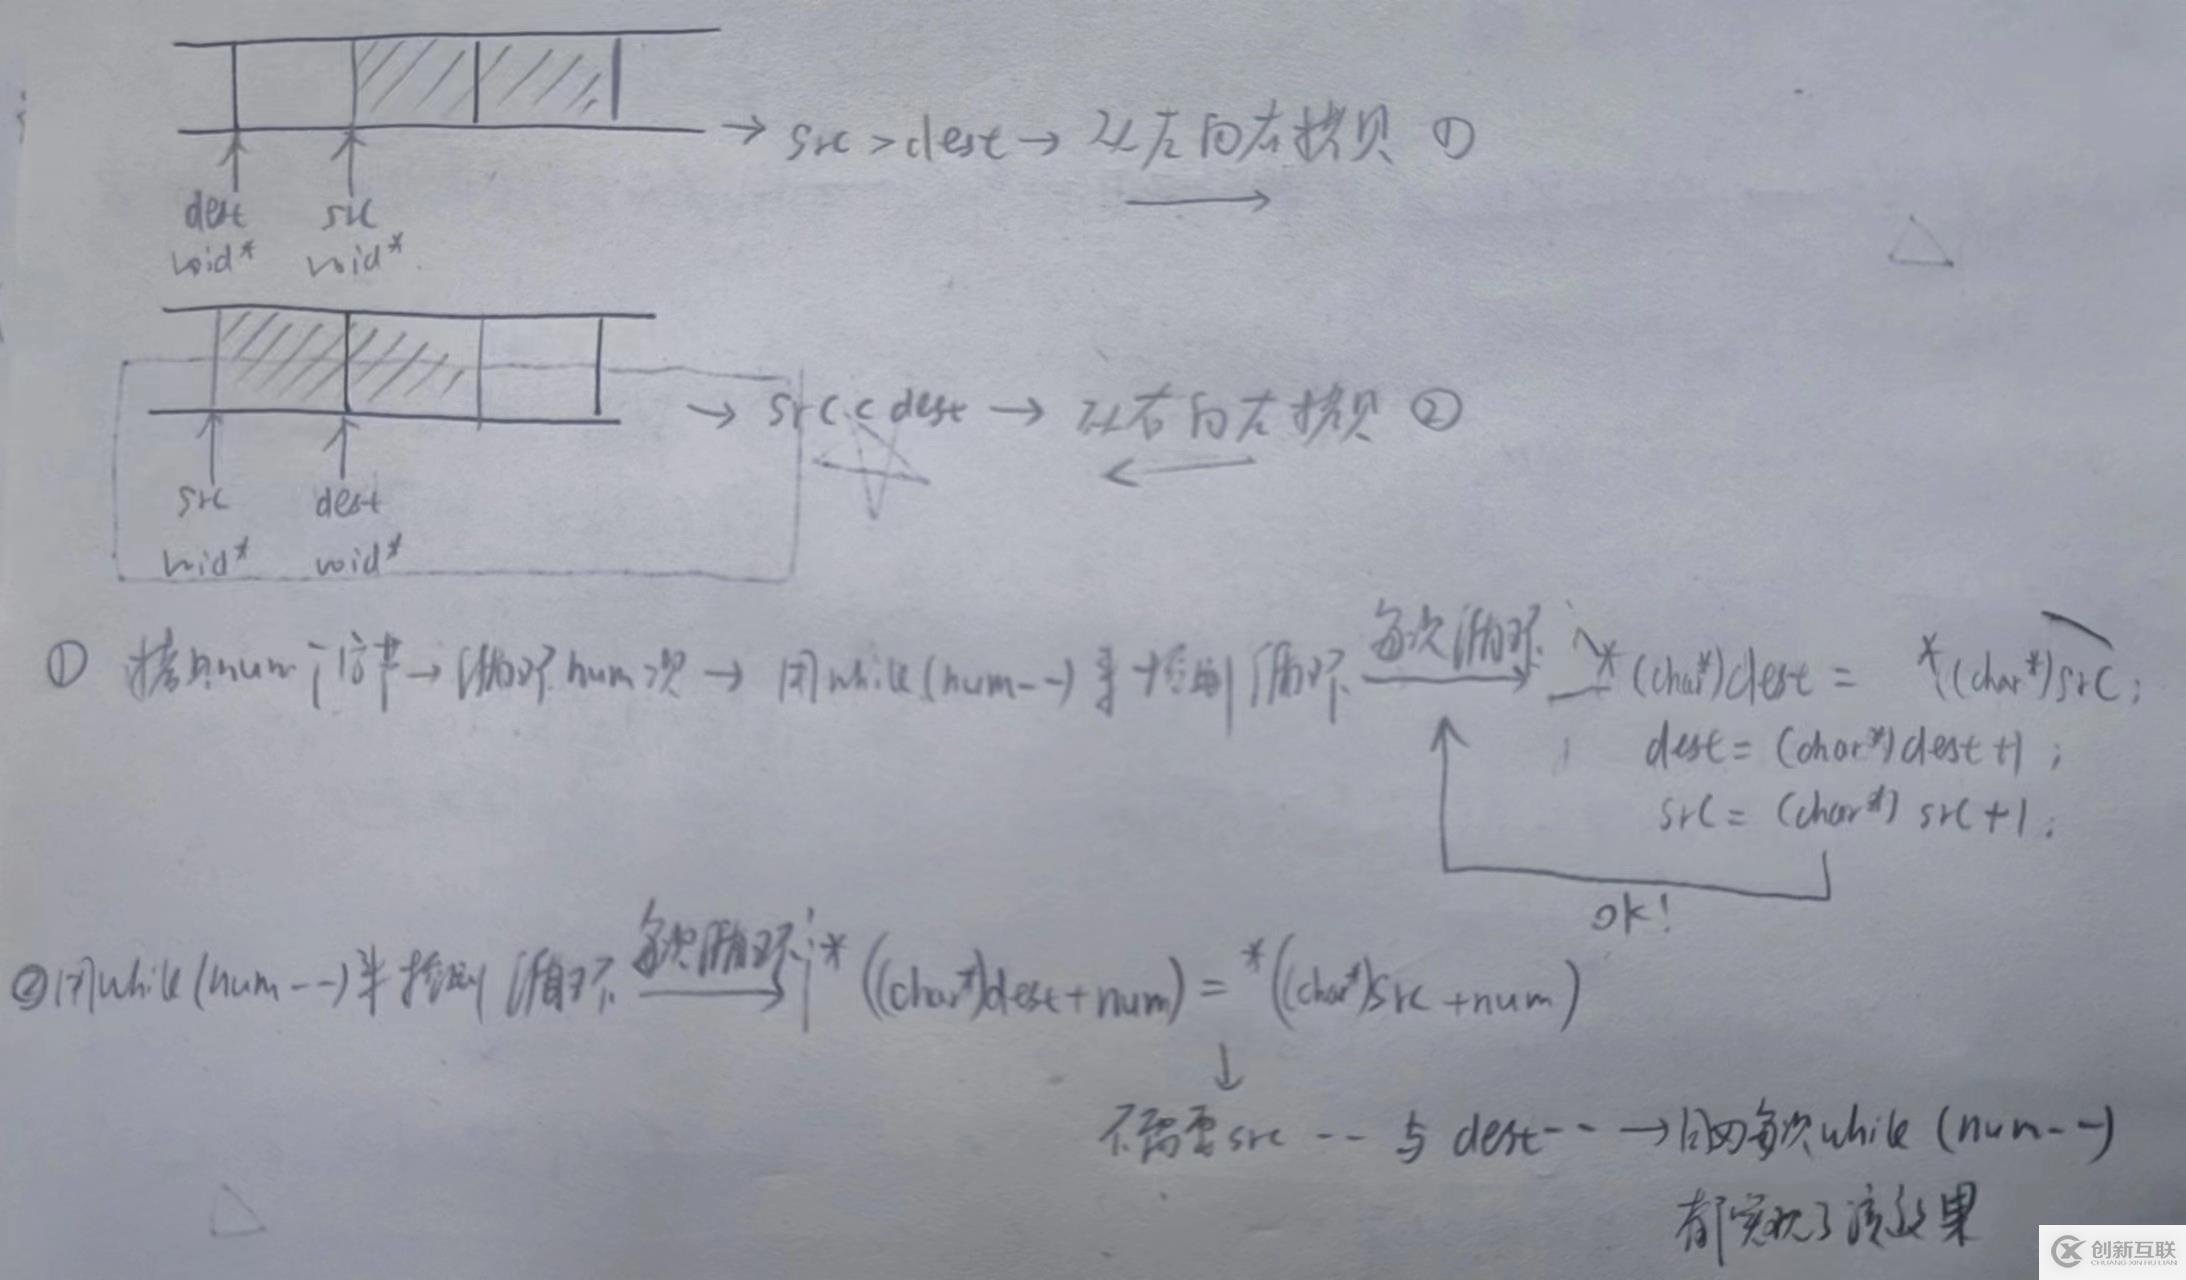 → src > dest → 从左向右拷贝 ①
dest src
void* void*
→ src < dest → 从右向左拷贝 ②
src dest
void* void*
① 拷贝num个字节 → 循环num次 → 用while(num--)来控制循环 每次循环: *(char*)dest = *(char*)src;
dest = (char*)dest+1;
src = (char*)src+1;
ok!
②用while(num--)来控制循环 每次循环: *((char*)dest+num) = *((char*)src+num)
↓
不需要src-- 与 dest-- → 因为每次while(num--)
都实现了该效果
创新互联
CHUANG XIN HU LIAN